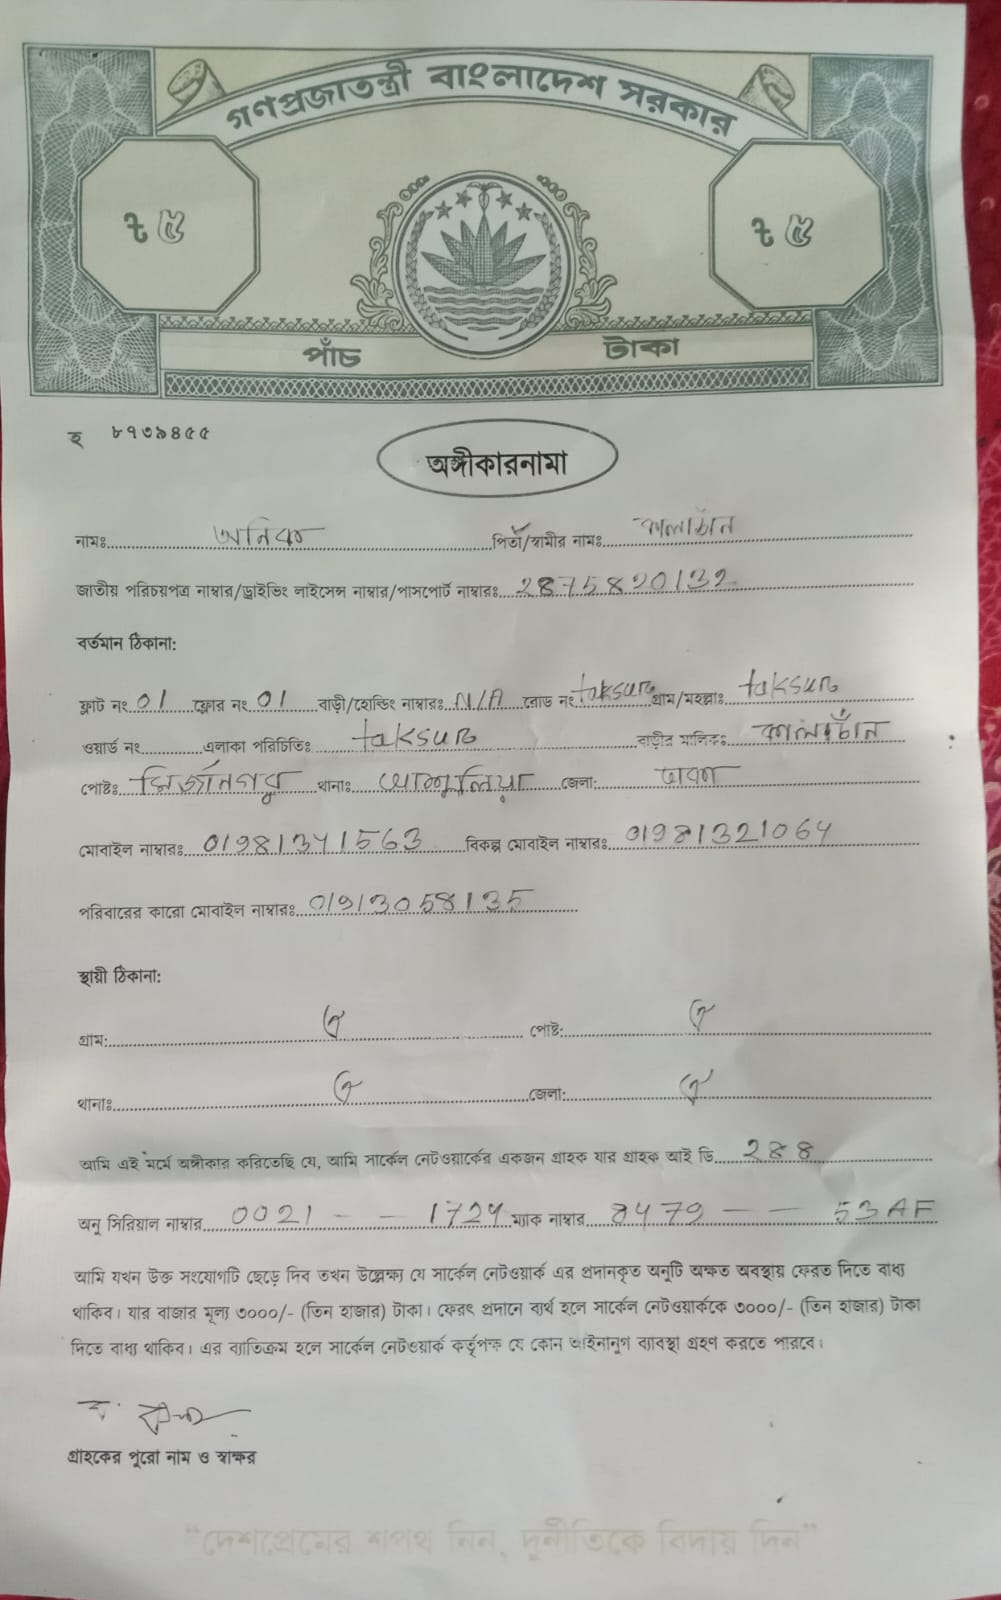 গণপ্রজাতন্ত্রী বাংলাদেশ সরকার
৳ ৫ ৳ ৫
পাঁচ টাকা
হ ৮৭৩৯৪৫৫
অঙ্গীকারনামা
নামঃ অনিক পিতা/স্বামীর নামঃ কালাচাঁন
জাতীয় পরিচয়পত্র নাম্বার/ড্রাইভিং লাইসেন্স নাম্বার/পাসপোর্ট নাম্বারঃ 2875820132
বর্তমান ঠিকানা:
ফ্লাট নং 01 ফ্লোর নং 01 বাড়ী/হোল্ডিং নাম্বারঃ N/A রোড নং taksur গ্রাম/মহল্লাঃ taksur
ওয়ার্ড নং এলাকা পরিচিতিঃ taksur বাড়ীর মালিকঃ কালাচাঁন
পোষ্টঃ মির্জানগর থানাঃ আশুলিয়া জেলা: ঢাকা
মোবাইল নাম্বারঃ 01981341563 বিকল্প মোবাইল নাম্বারঃ 01981321064
পরিবারের কারো মোবাইল নাম্বারঃ 01913058135
স্থায়ী ঠিকানা:
গ্রাম: ঐ পোষ্ট: ঐ
থানাঃ ঐ জেলা: ঐ
আমি এই মর্মে অঙ্গীকার করিতেছি যে, আমি সার্কেল নেটওয়ার্কের একজন গ্রাহক যার গ্রাহক আই ডি 288
অনু সিরিয়াল নাম্বার 0021 - - 1724 ম্যাক নাম্বার 8479 - - 53AF
আমি যখন উক্ত সংযোগটি ছেড়ে দিব তখন উল্লেক্ষ্য যে সার্কেল নেটওয়ার্ক এর প্রদানকৃত অনুটি অক্ষত অবস্থায় ফেরত দিতে বাধ্য
থাকিব। যার বাজার মূল্য ৩০০০/- (তিন হাজার) টাকা। ফেরৎ প্রদানে ব্যর্থ হলে সার্কেল নেটওয়ার্ককে ৩০০০/- (তিন হাজার) টাকা
দিতে বাধ্য থাকিব। এর ব্যতিক্রম হলে সার্কেল নেটওয়ার্ক কর্তৃপক্ষ যে কোন আইনানুগ ব্যাবস্থা গ্রহণ করতে পারবে।
গ্রাহকের পুরো নাম ও স্বাক্ষর
“দেশপ্রেমের শপথ নিন, দুর্নীতিকে বিদায় দিন”